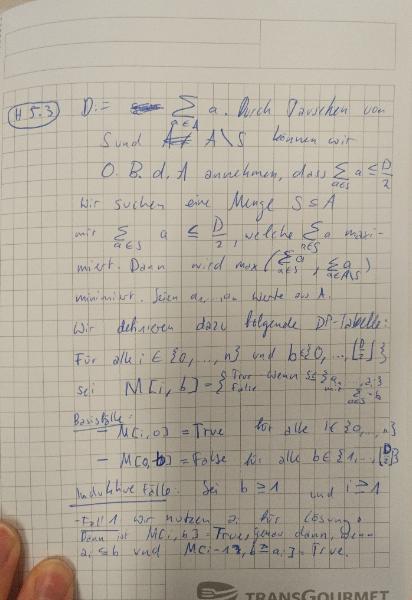 H 5.3
D := ∑_{a∈A} a. Durch Tauschen von
S und A\S können wir
O.B.d.A annehmen, dass ∑_{a∈S} a ≤ D/2
Wir suchen eine Menge S ⊆ A
mit ∑_{a∈S} a ≤ D/2, welche ∑_{a∈S} a maxi-
miert. Dann wird max(∑_{a∈S} a, ∑_{a∈A\S} a)
minimiert. Seien a₁,...,aₙ Werte aus A.
Wir definieren dazu folgende DP-Tabelle:
Für alle i ∈ {0,...,n} und b ∈ {0,...,⌊D/2⌋}
sei M[i, b] = { True wenn S ⊆ {a₁,...,aᵢ}
False mit ∑_{a∈S} = b
Basisfälle:
- M[i,0] = True für alle i ∈ {0,...,n}
- M[0,b] = False für alle b ∈ {1,...,⌊D/2⌋}
Induktive Fälle: Sei b ≥ 1 und i ≥ 1
- Fall 1 wir nutzen aᵢ für Lösung.
Dann ist M[i,b] = True genau dann, wenn
aᵢ ≤ b und M[i-1, b-aᵢ] = True.
TRANSGOURMET